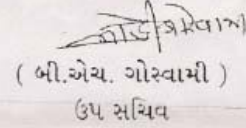 ( બી.એચ. ગોસ્વામી )
ઉપ સચિવ